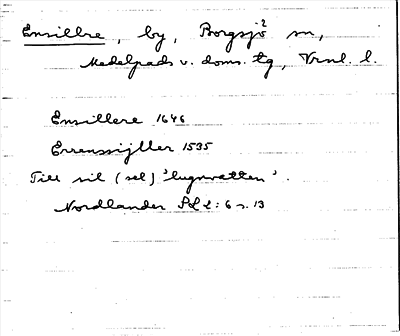 Ensillre, by, Borgsjö sn,
Medelpads v. doms. tg, Vrnl. l.
Ensillere 1646
Errenssijller 1535
Till sil (sel) 'lugnvatten'.
Nordlander 6 s. 13